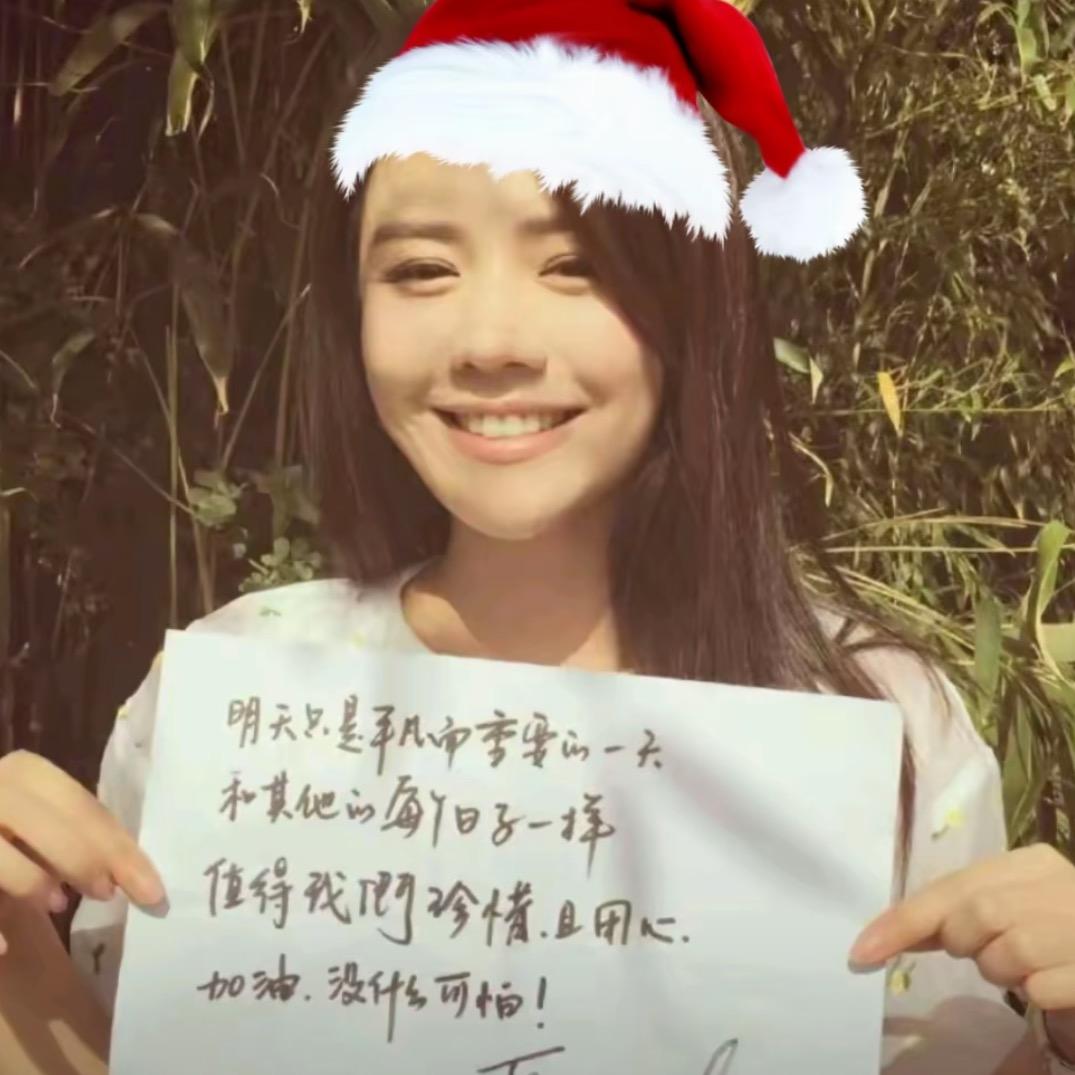 明天只是平凡而重要的一天
和其他的每个日子一样
值得我們珍惜.且用心.
加油.没什么可怕!